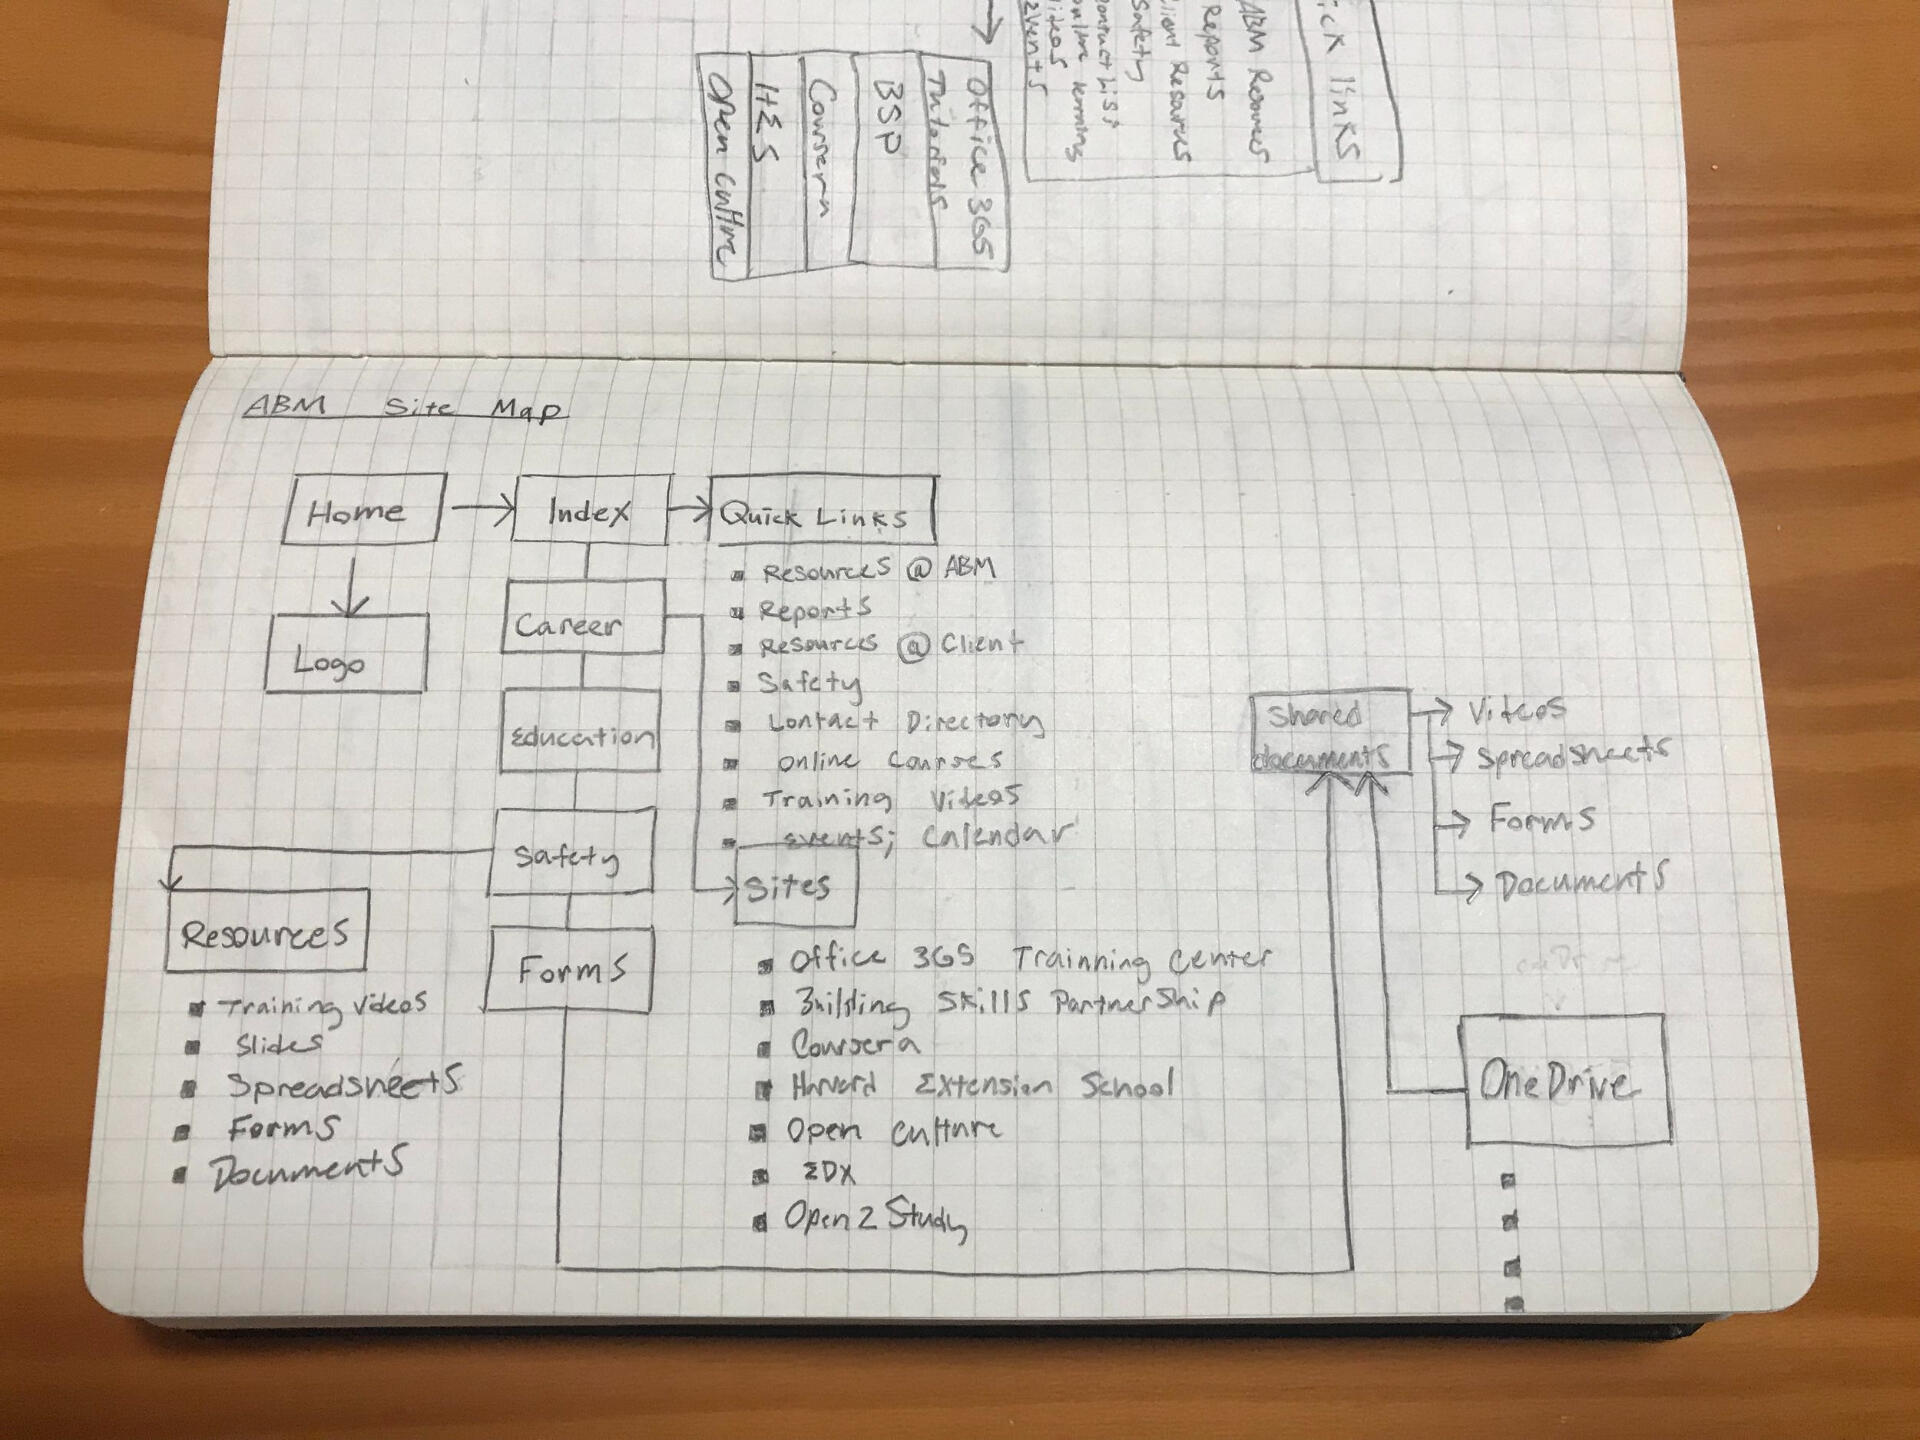 ick links
ABM Resources
Reports
Client Resources
Safety
Contact List
online learning
Events
Office 365
Tutorials
BSP
Coursera
HES
Open culture
ABM Site Map
Home
Index
Quick Links
Resources @ ABM
Reports
Resources @ Client
Safety
Contact Directory
online Courses
Training Videos
Events; Calendar
Logo
Career
Education
Safety
Forms
Resources
Training Videos
Slides
Spreadsheets
Forms
Documents
Sites
Office 365 Trainning Center
Building Skills Partnership
Coursera
Harvard Extension School
Open Culture
EDX
Open 2 Study
Shared
documents
Videos
Spreadsheets
Forms
Documents
OneDrive